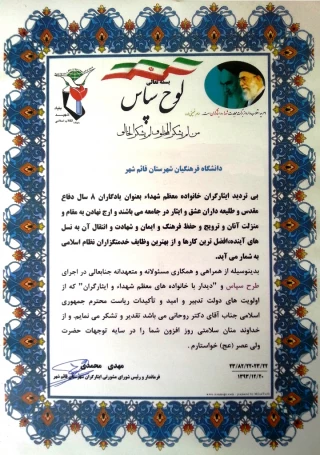 بسمه تعالی
لوح سپاس
من لم یشکر المخلوق لم یشکر الخالق
دانشگاه فرهنگیان شهرستان قائم شهر
بی تردید ایثارگران خانواده معظم شهداء بعنوان یادگاران ۸ سال دفاع
مقدس و طلیعه داران عشق و ایثار در جامعه می باشند و ارج نهادن به مقام و
منزلت آنان و ترویج و حفظ فرهنگ و ایمان و شهادت و انتقال آن به نسل
های آینده،افضل ترین کارها و از بهترین وظایف خدمتگزاران نظام اسلامی
به شمار می آید.
بدینوسیله از همراهی و همکاری مسئولانه و متعهدانه جنابعالی در اجرای
طرح سپاس و "دیدار با خانواده های معظم شهداء و ایثارگران" که از
اولویت های دولت تدبیر و امید و تأکیدات ریاست محترم جمهوری
اسلامی جناب آقای دکتر روحانی می باشد تقدیر و تشکر می نمایم. و از
خداوند منان سلامتی روز افزون شما را در سایه توجهات حضرت
ولی عصر (عج) خواستارم .
مهدی محمدی
فرماندار و رئیس شورای مشورتی ایثارگران شهرستان قائم شهر
۱۳۹۳/۱۲/۲۰